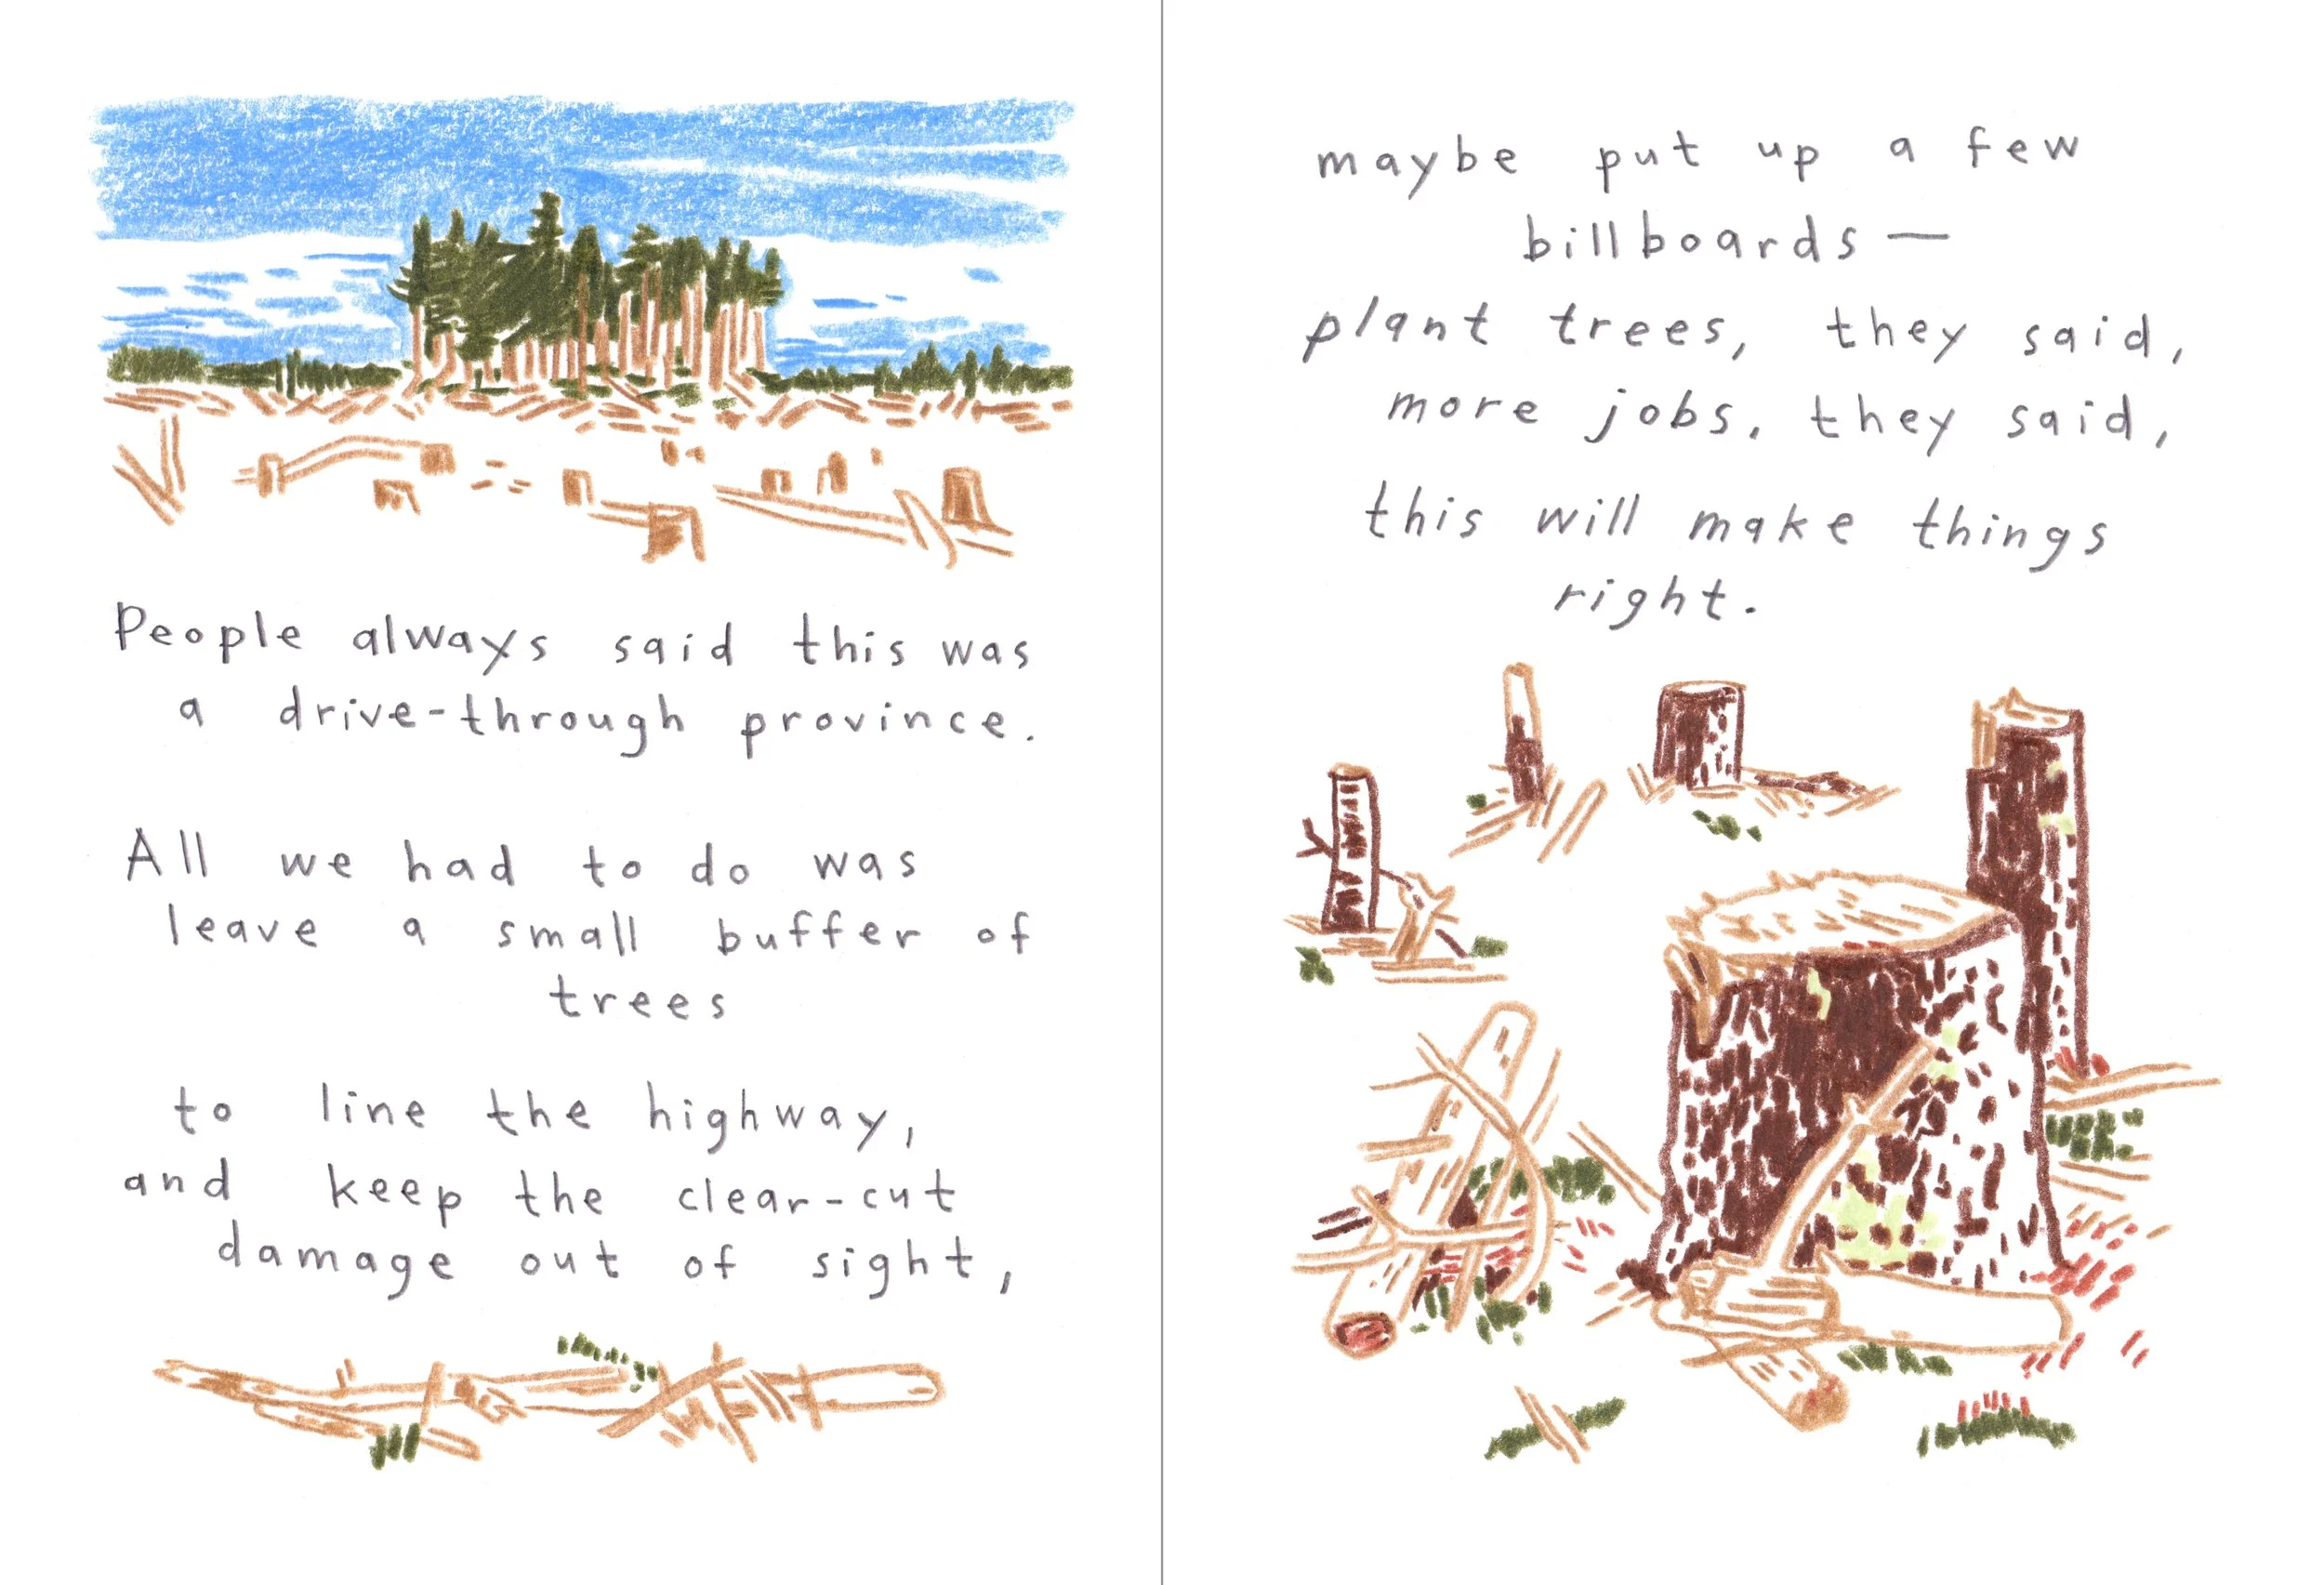 People always said this was
a drive-through province.
All we had to do was
leave a small buffer of
trees
to line the highway,
and keep the clear-cut
damage out of sight,
maybe put up a few
billboards—
plant trees, they said,
more jobs, they said,
this will make things
right.